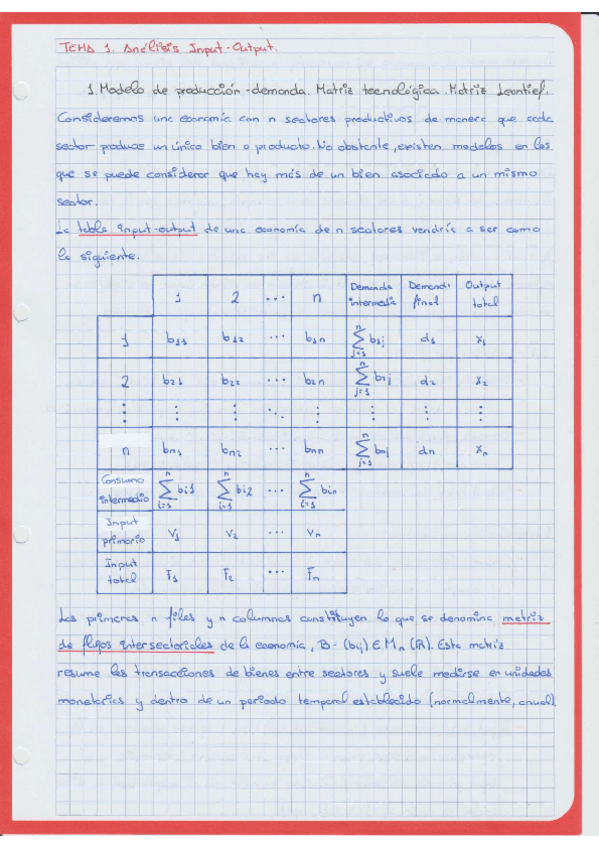 TEMA 1. Análisis Input-Output.
1. Modelo de producción-demanda. Matriz tecnológica. Matriz Leontief.
Consideremos una economía con n sectores productivos de manera que cada
sector produce un único bien o producto. No obstante, existen modelos en los
que se puede considerar que hay más de un bien asociado a un mismo
sector.
La tabla input-output de una economía de n sectores vendría a ser como
la siguiente.
1 2 ... n Demanda intermedia Demanda final Output total
1 b11 b12 ... b1n ∑j=1^n b1j d1 x1
2 b21 b22 ... b2n ∑j=1^n b2j d2 x2
⋮ ⋮ ⋮ ⋮ ⋮ ⋮ ⋮ ⋮
n bn1 bn2 ... bnn ∑j=1^n bnj dn xn
Consumo intermedio ∑i=1^n bi1 ∑i=1^n bi2 ... ∑i=1^n bin
Input primario V1 V2 ... Vn
Input total F1 F2 ... Fn
Las primeras n filas y n columnas constituyen lo que se denomina matriz
de flujos intersectoriales de la economía, B = (bij) ∈ Mn (R). Esta matriz
resume las transacciones de bienes entre sectores y suele medirse en unidades
monetarias y dentro de un periodo temporal establecido (normalmente, anual).